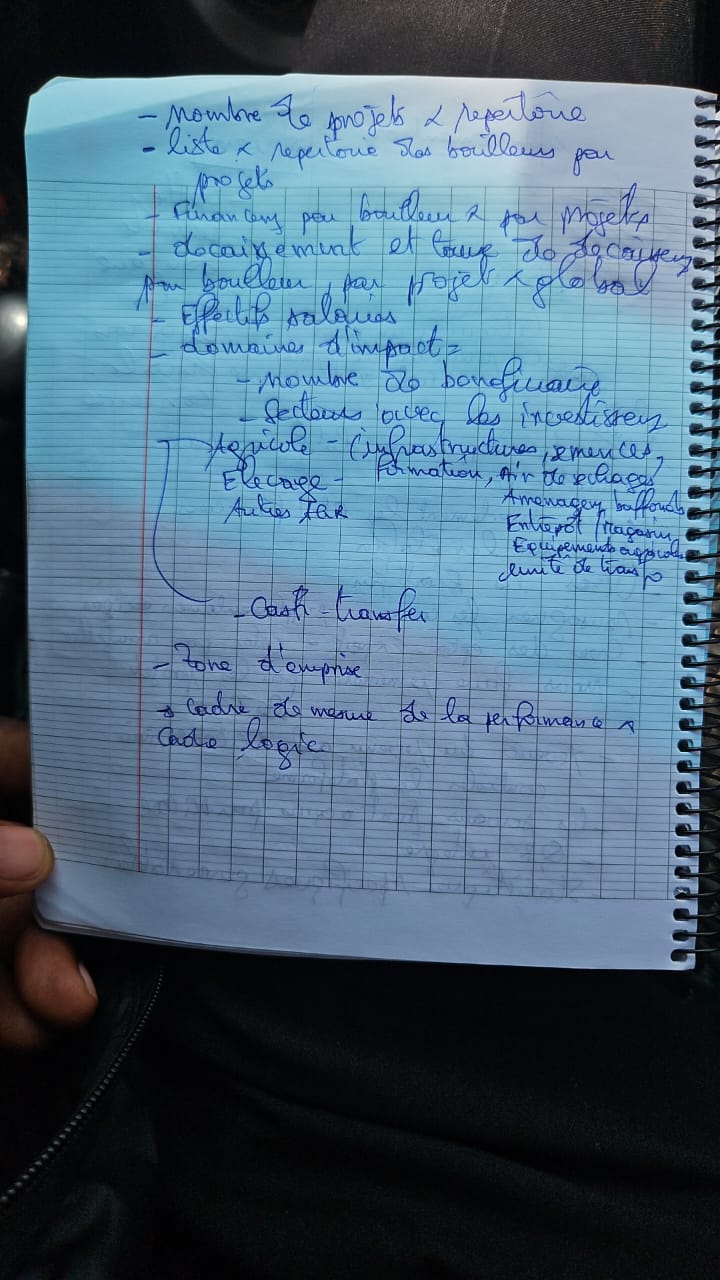 - Nombre de projets & repertoire
- liste & repertoire des bailleurs par
projets
- Financemt par bailleur & par projets
- decaissement et taux de decaissemt
par bailleur, par projet & global
- Effectifs salariés
- domaines d'impact =
- nombre de beneficiaire
- Secteurs avec les investissemt
Agricole - (infrastructures, semences,
Elevage - formation, Air de sechages
Autres
Amenagemt basfonds
Entrepot / Magasin
Equipements agricoles
unité de transfo
- Cash-transfer
- Zone d'emprise
→ Cadre de mesure de la performance &
Cadre logic